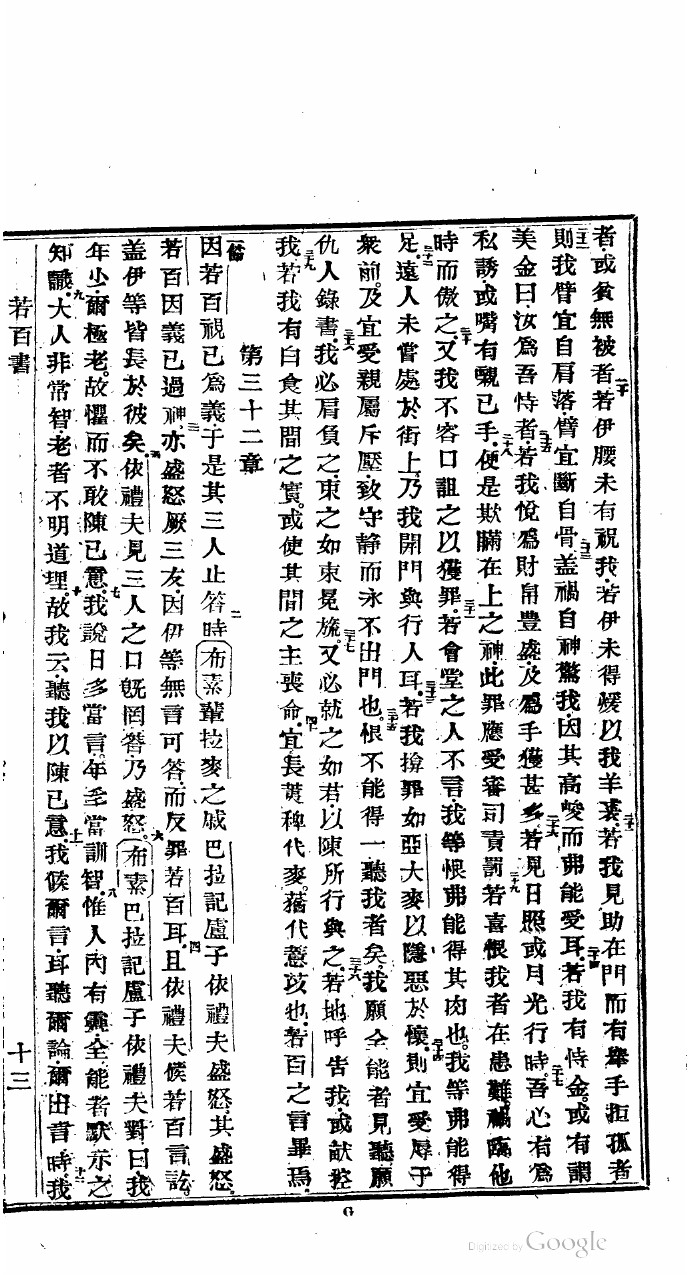 者或貧無被者若伊腰未有祝我若伊未得煖以我羊裘若我見助在門而有舉手拒孤者
則我臂宜自肩落臂宜斷自骨盖禍自神驚我因其高峻而弗能受耳若我有恃金或有謂
美金曰汝爲吾恃者若我悅爲財帛豐盛及爲手獲甚多若見日照或月光行時吾心有爲
私誘或嘴有親己手便是欺瞞在上之神此罪應受審司責罰若喜恨我者在患難禍臨他
時而傲之又我不容口詛之以獲罪若會堂之人不言我等恨弗能得其肉也我等弗能得
足遠人未嘗處於街上乃我開門與行人耳若我揜罪如亞大麥以隱惡於懷則宜受辱于
衆前及宜受親屬斥壓致守静而永不出門也恨不能得一聽我者矣我願全能者見聽願
仇人錄書我必肩負之束之如束冕旒又必就之如君以陳所行與之若地呼告我或献
我若我有白食其間之實或使其間之主喪命宜長蒺稗代麥藩代薏苡也若百之言畢焉
第三十二章
因若百視己爲義子是其三人止答時布素輩拉麥之戚巴拉記盧子依禮夫盛怒其盛怒
若百因義己過神亦盛怒厥三友因伊等無言可答而反罪若百耳且依禮夫候若百言訖
盖伊等皆長於彼矣依禮夫見三人之口旣罔答乃盛怒布素巴拉記盧子依禮夫對曰我
年少爾極老故懼而不敢陳己意我說日多當言年多當訓智惟人內有靈全能者默示之
知識大人非常智老者不明道理故我云聽我以陳己意我候爾言耳聽爾論爾出言時我
若百書
十三
G
Digitized by Google